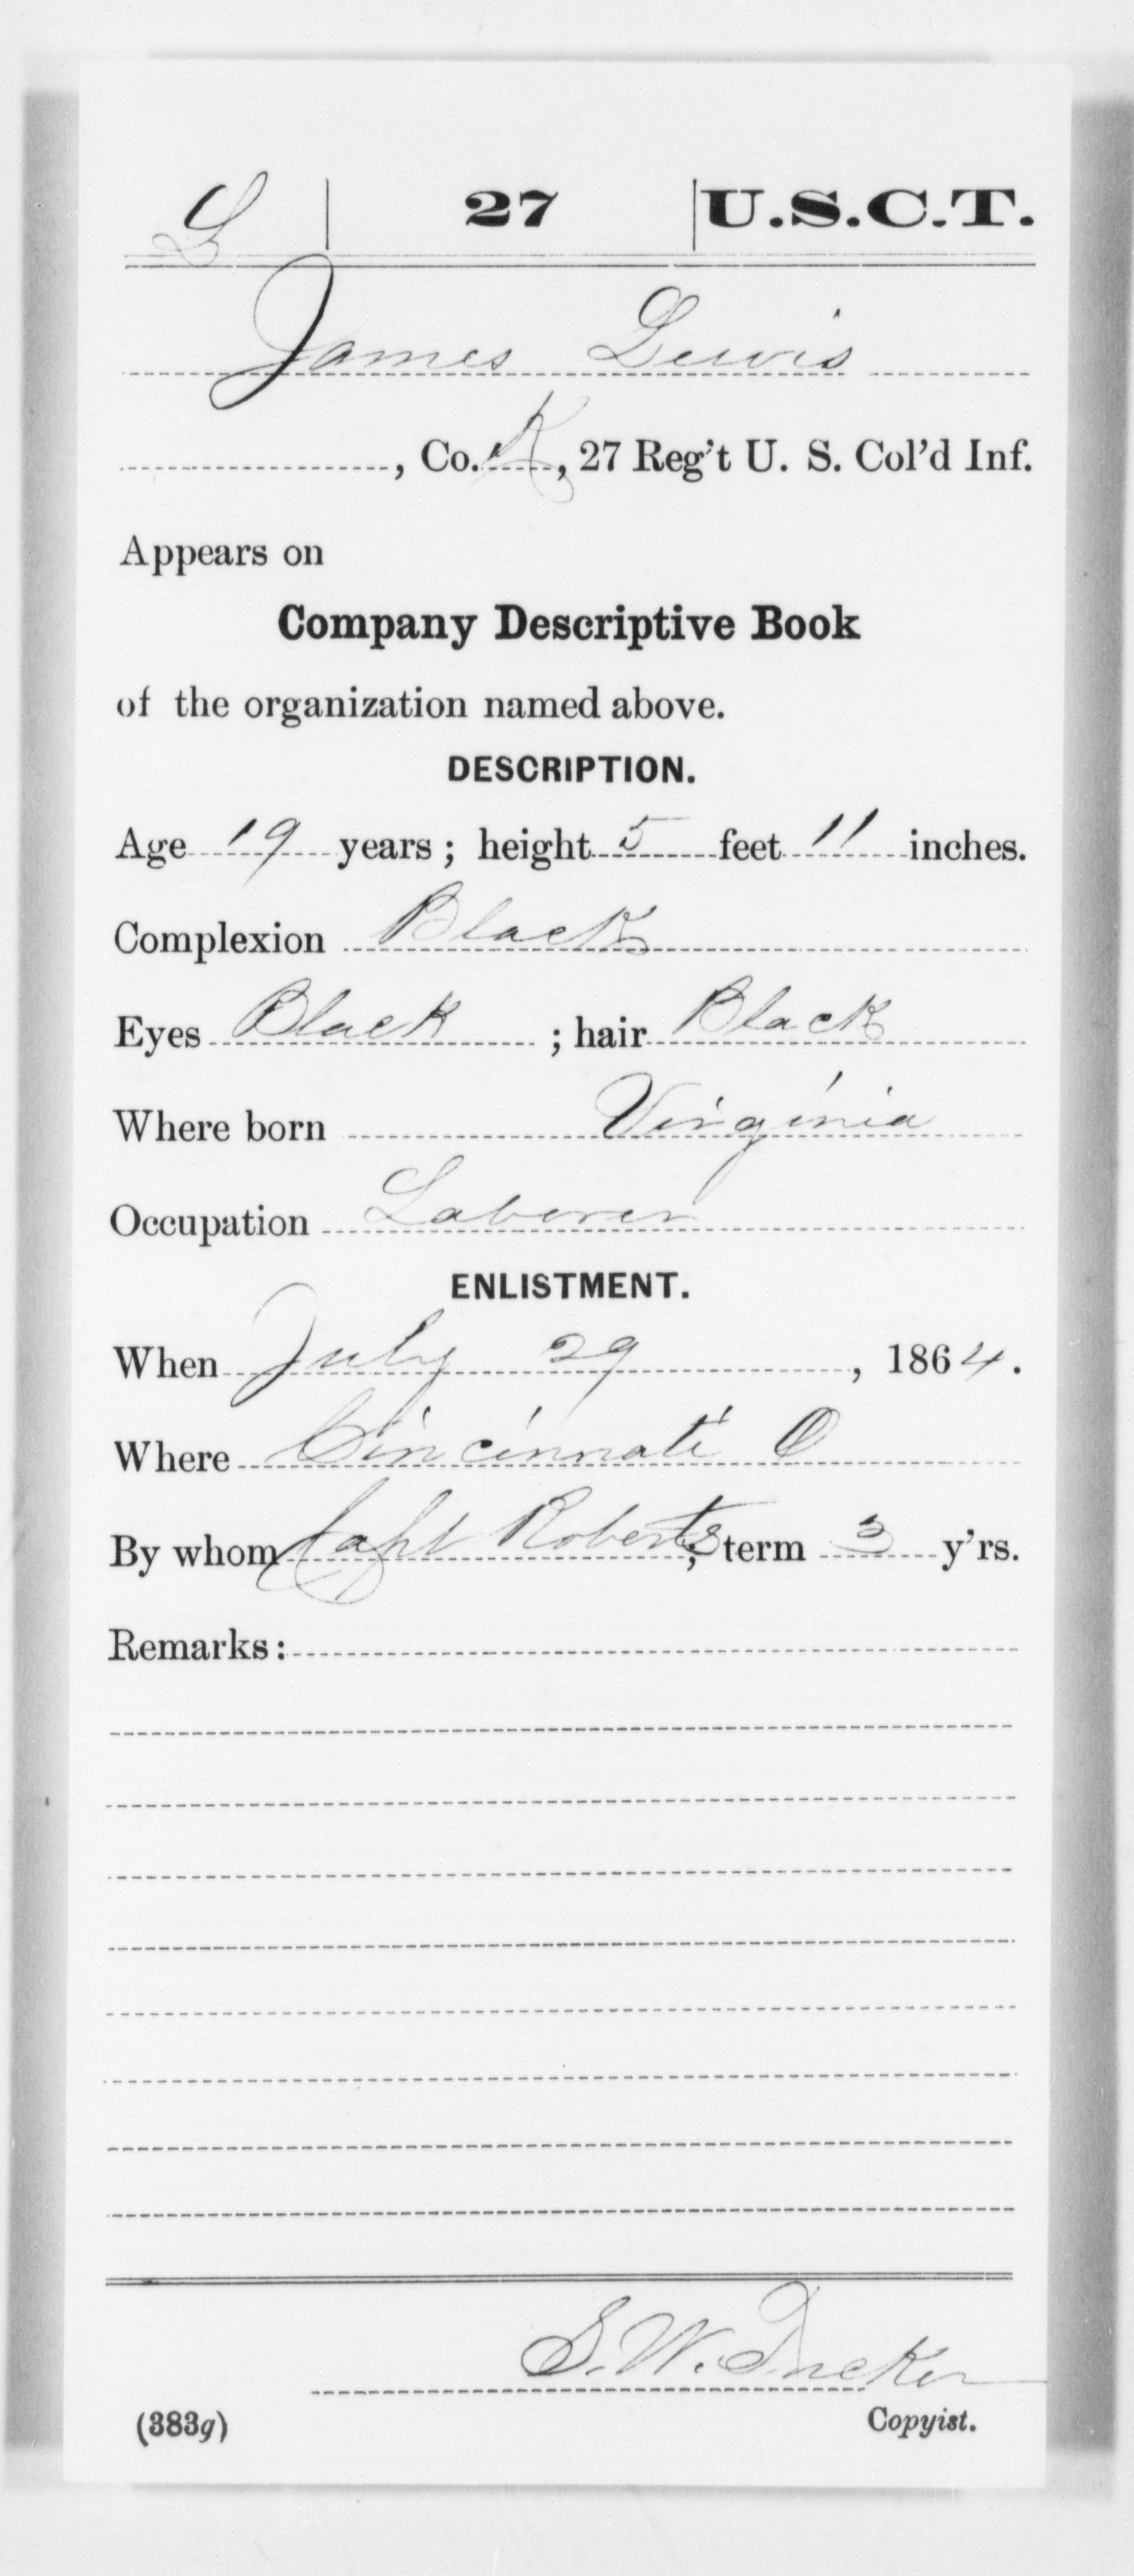 L | 27 | U.S.C.T.
James Lewis
, Co. K, 27 Reg't U. S. Col'd Inf.
Appears on
Company Descriptive Book
of the organization named above.
DESCRIPTION.
Age 19 years; height 5 feet 11 inches.
Complexion Black
Eyes Black ; hair Black
Where born Virginia
Occupation Laborer
ENLISTMENT.
When July 29, 1864.
Where Cincinnati O
By whom Capt Roberts; term 3 y'rs.
Remarks:
S. W. Tucker
Copyist.
(383g)